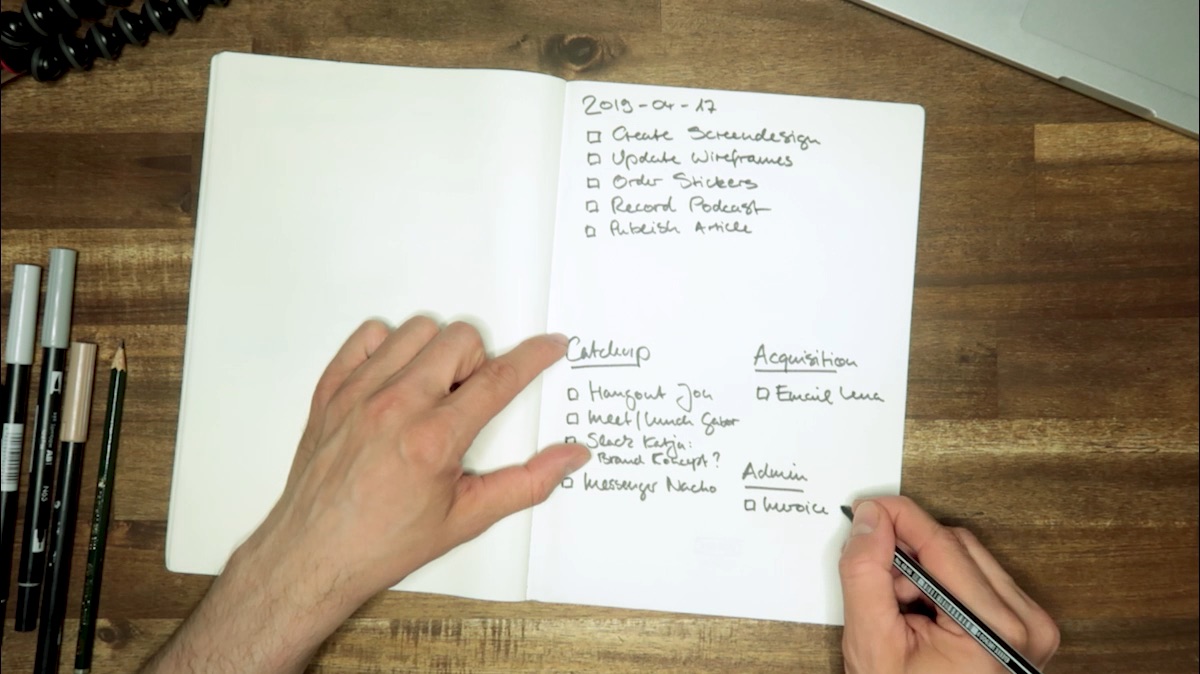 2019-04-17
Create Screendesign
Update Wireframes
Order Stickers
Record Podcast
Publish Article
Catchup
Hangout Jon
Meet/Lunch Gabor
Slack Katja:
Brand Koncept?
Messenger Nacho
Acquisition
Email Lena
Admin
Invoice